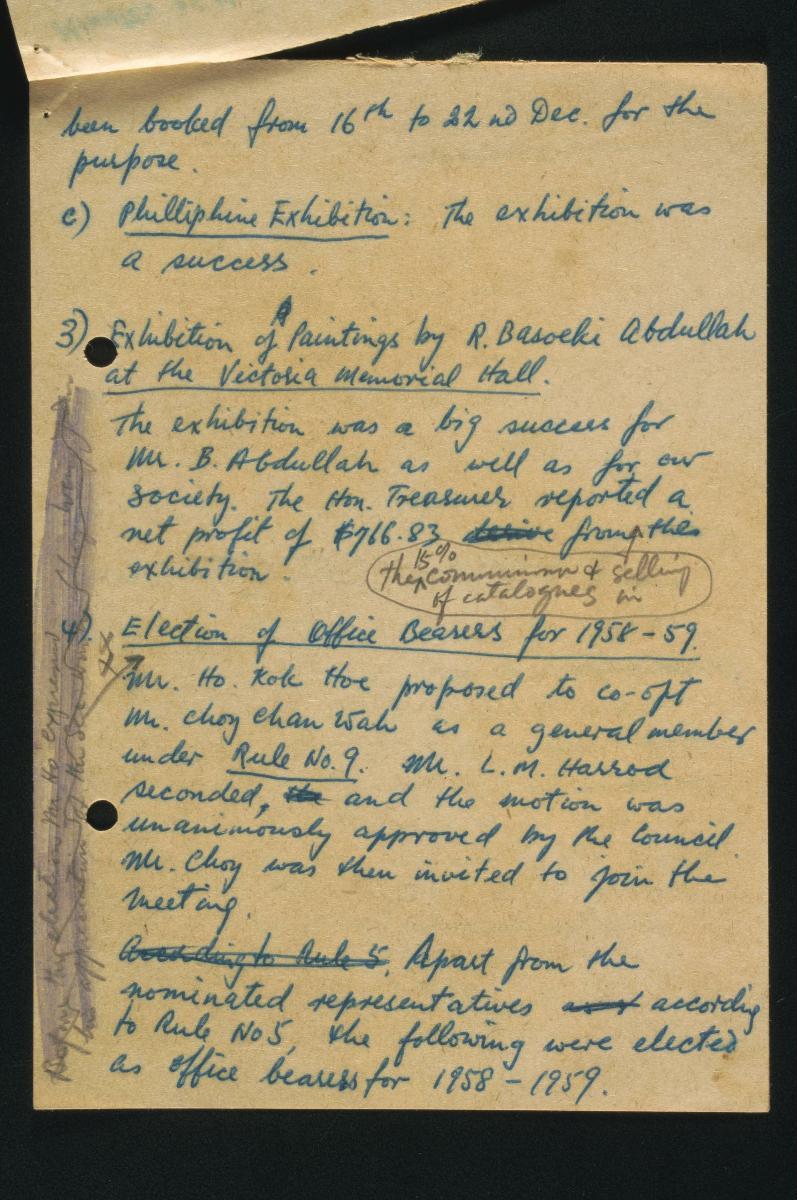 been booked from 16th to 22nd Dec. for the
purpose.
c) Philliphine Exhibition: The exhibition was
a success.
3) Exhibition of Paintings by R. Basoeki Abdullah
at the Victoria Memorial Hall.
The exhibition was a big success for
Mr. B. Abdullah as well as for our
Society. The Hon. Treasurer reported a
net profit of $766.83 derive from the
exhibition.
the 15% commission & selling
of catalogues in
4). Election of Office Bearers for 1958-59.
Mr. Ho Kok Hoe proposed to co-opt
Mr. Choy Chan Wah as a general member
under Rule No. 9. Mr. L.M. Harrod
seconded, the and the motion was
unanimously approved by the Council.
Mr. Choy was then invited to join the
meeting.
According to Rule 5, Apart from the
nominated representatives according
to Rule No 5, the following were elected
as office bearers for 1958-1959.
Before the election Mr. Ho expressed
his appreciation